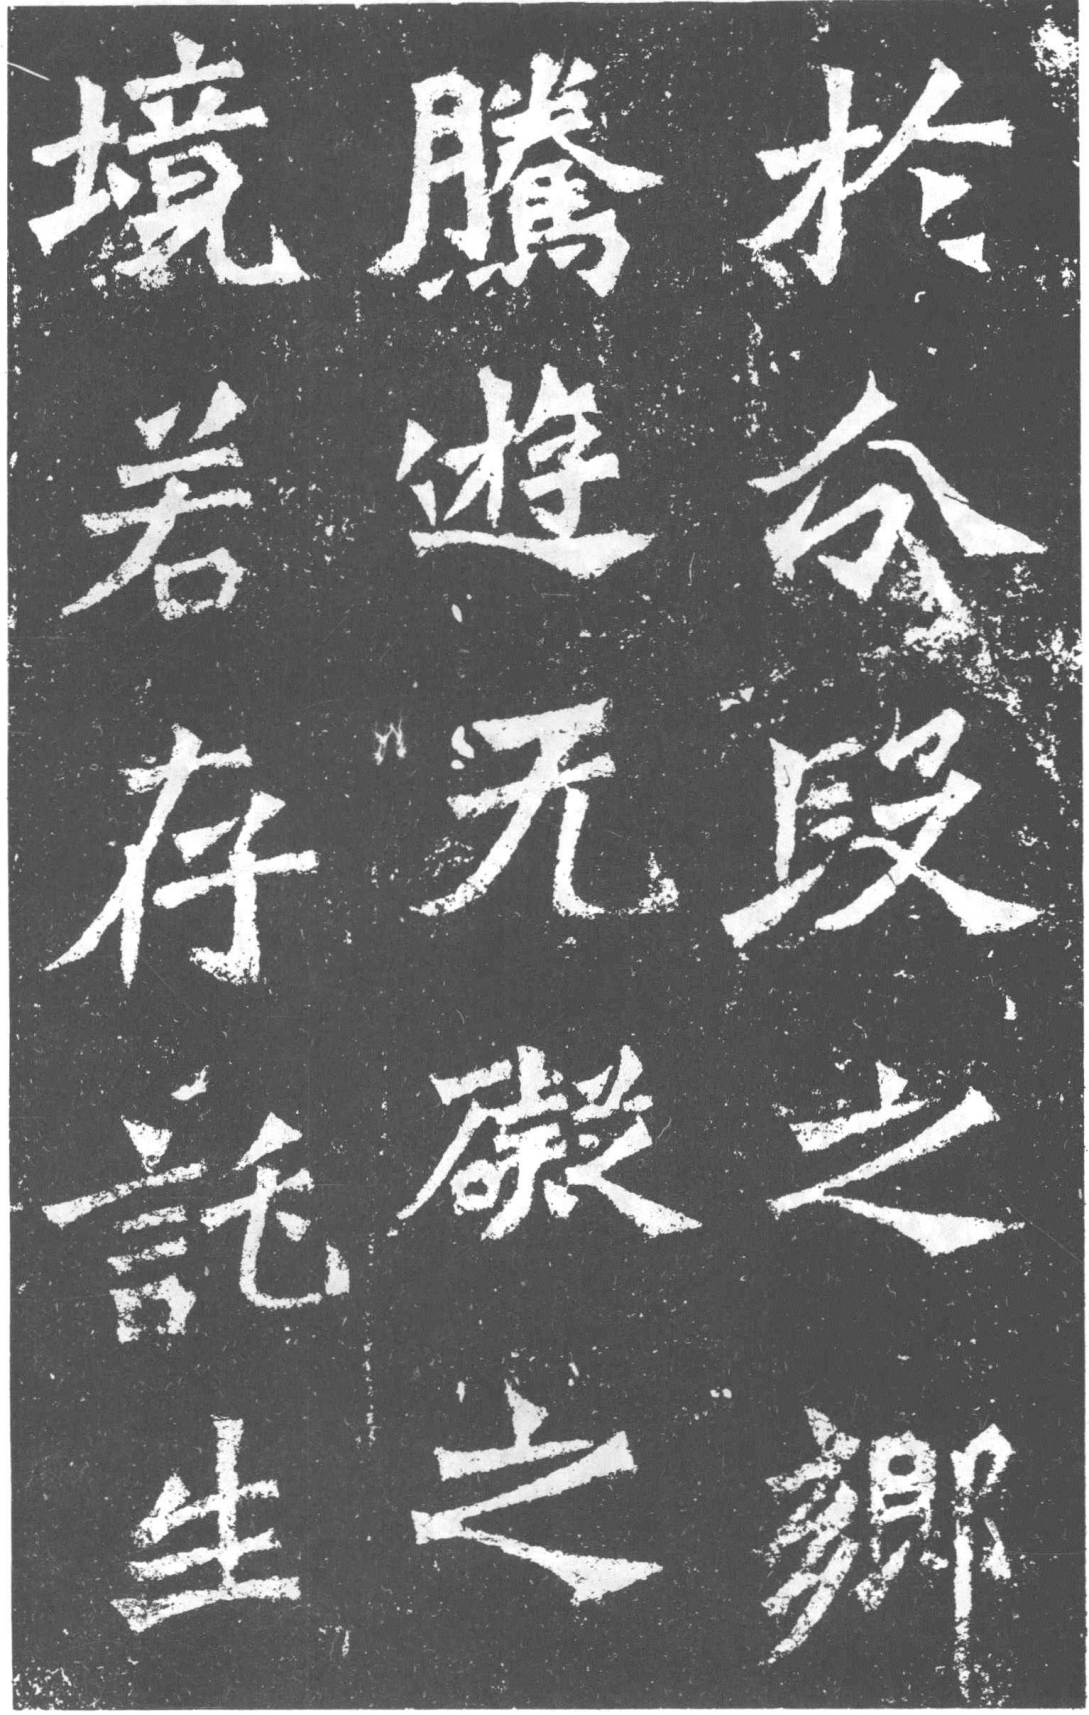 於分段之鄉
騰遊无礙之
境若存託生